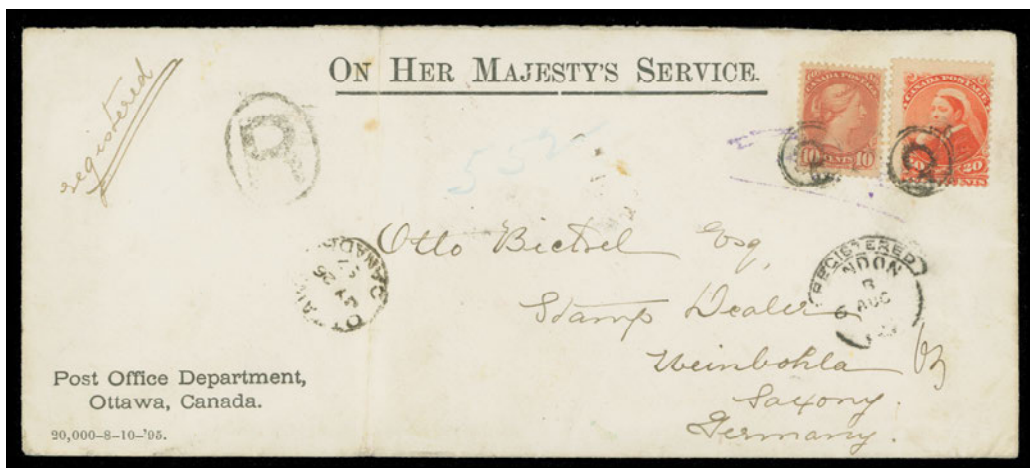 ON HER MAJESTY'S SERVICE.
registered
R
CANADA POSTAGE
10 CENTS 10
CANADA POSTAGE
20 20
CENTS
R
R
552
Otto Bickel Esq,
Stamp Dealer
Weinbohla
Saxony.
Germany.
REGISTERED
LONDON
AUG
OTTAWA
CANADA
Post Office Department,
Ottawa, Canada.
20,000–8–10–'95.